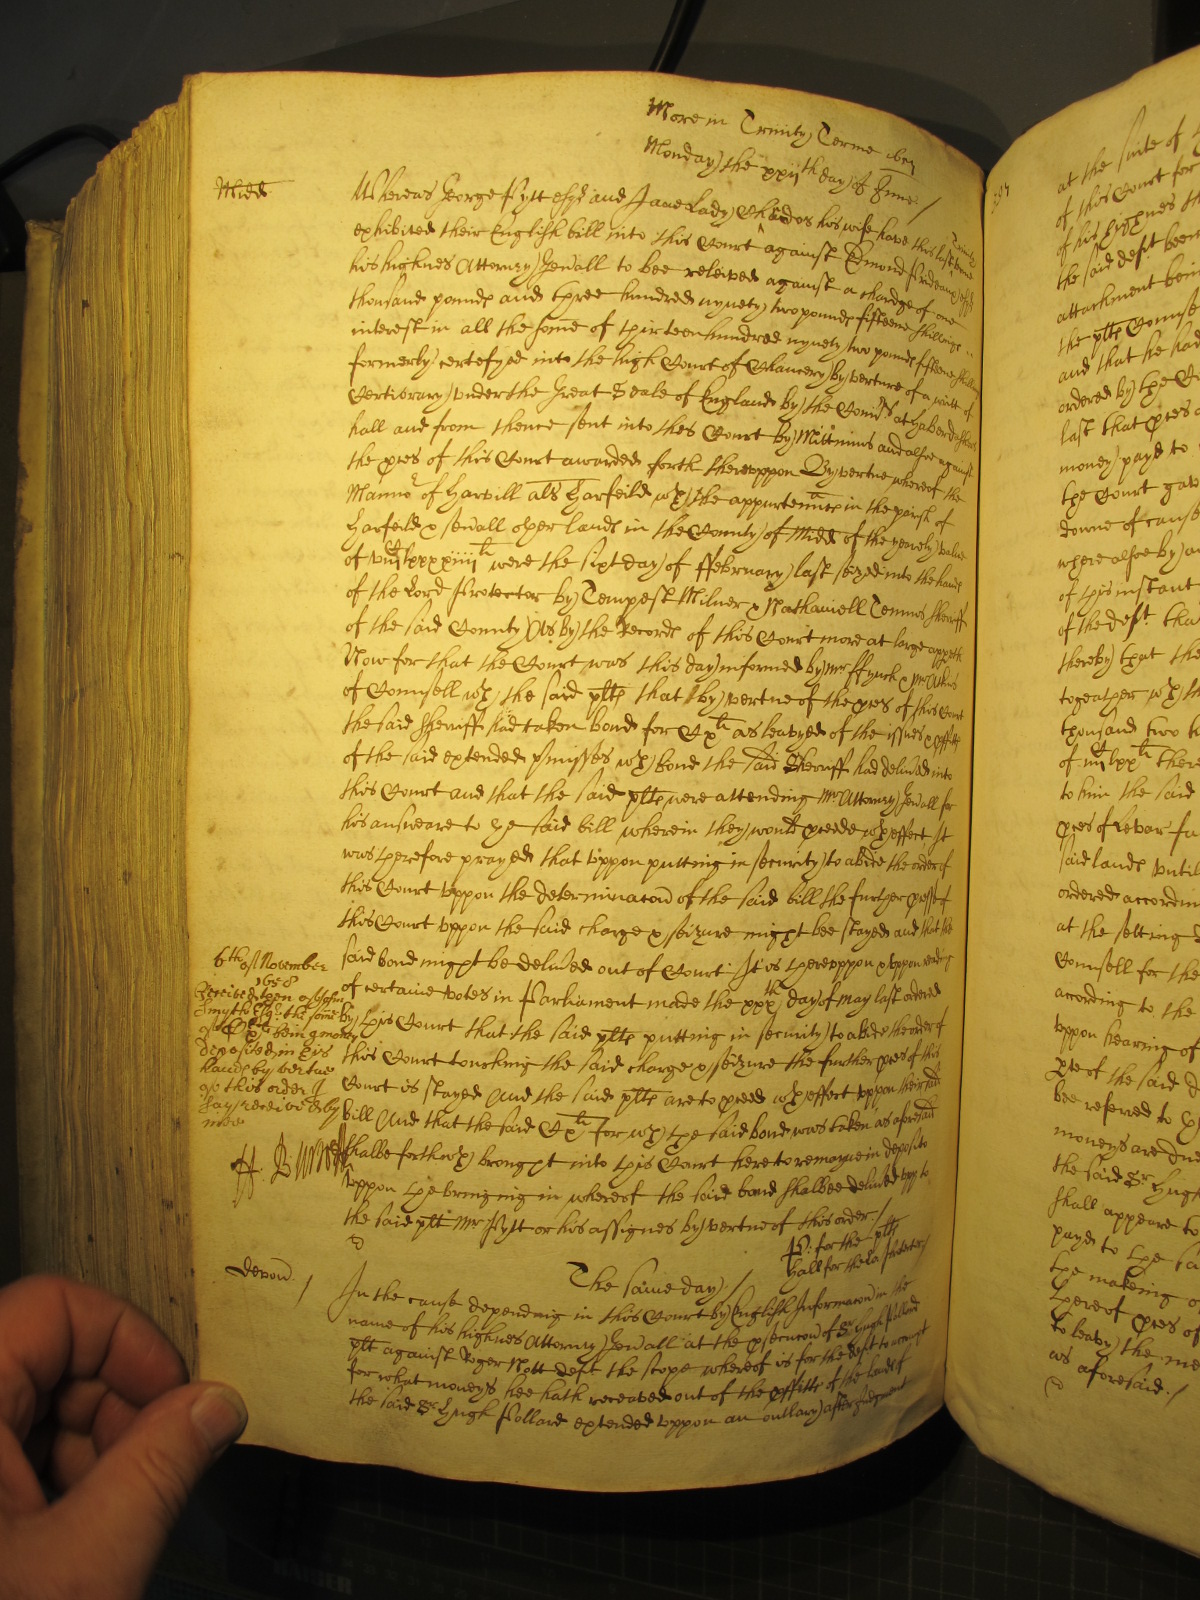 More in Trinity Terme 1657
Monday the xxijth day of June /
Midd
Whereas George Pytt esqr and Jane Lady Chandos his wife have this last Trinity terme
exhibited their English bill into this Court against Edmond Prideaux esqr
his highnes Attorney Gen'all to bee releived against a chardge of one
thousand pounds and three hundred nynety two pounds fifteene shillings
interest in all the some of thirteen hundred nynety two pounds fifteene shillings
formerly certefyed into the high Court of Chancery by vertue of a writt of
Certiorary under the Great Seale of England by the Comrs at Haberdashers
hall and from thence sent into this Court by Mittimus and alsoe against
the pces of this Court awarded forth thereuppon By vertue whereof the
Mannor of Harvill als Harfeild wth the appurtennces in the parish of
Harfeild & sev'all other lands in the County of Midd of the yearely value
of were the sixt day of ffebruary last seized into the hands
of the Lord Protector by Tempest Milner & Nathaniell Temms Sheriff
of the said County As by the Records of this Court more at large appeth
Now for that the Court was this day informed by mr ffynch & mr
of Counsell wth the said plts that by vertue of the pces of this Court
the said Sherriff had taken bond for Cxli as leavyed of the issues & pffitts
of the said extended p'misses wch bond the said Sherriff had deliv'ed into
this Court and that the said plts were attending Mr Attorney Gen'all for
his answeare to ye said bill wherein they would pceede wth effect It
was therefore prayed that uppon putting in security to abide the order of
this Court uppon the determinacon of the said bill the further pcesse of
this Court uppon the said charge & seizure might bee stayed and that the
said bond might be deliv'ed out of Court It is thereuppon & uppon reading
of certaine votes in Parliament made the xxxth day of May last ordered
by this Court that the said plts putting in security to abide the order of
this Court touching the said charge & seizure the further pces of this
Court is stayed And the said plts are to pceed wth effect uppon their said
bill And that the said Cxli for wch the said bond was taken as aforesaid
shalbe forthwth brought into this Court here to remayne in deposito
uppon the bringing in whereof the said bond shalbee deliv'ed upp to
the said plt Mr Pytt or his assignes by vertue of this order /
6th of November
1658
Received then of
Smythe Esqr the some
of Cxli being money
deposited in his
hands by vertue
of this order I
say received by
mee
H. Burwell
P: for the plts
Hall for the La: Protector /
Devon /
The same day /
In the cause depending in this Court by English Informacon in the
name of his highnes Attorney Gen'all at the p'secucon of Sr Hugh Pollard
plt against Roger Nott deft the scope whereof is for the deft to accompt
for what moneys hee hath receaved out of the pffitts of the lands of
the said Sr Hugh Pollard extended uppon an outlary after Judgment
at the suite of
of this Court for
of his highnes
the said deft been
attachment bein
the plts Counse
and that he had
ordered by the
last that pces
money payd to
the Court gav
downe of cause
where alsoe by
of this instant
of the deft tha
thereby that the
togeather wth th
thousand two
there
to him the said
pces of Levar fa
said lands until
ordered accordin
at the setting
Counsell for the
according to the
uppon hearing of
of the said
bee referred to
moneys are due
the said Sr Hugh
shall appeare to
payd to the sa
the making
thereof pces of
to leavy the
as aforesaid /